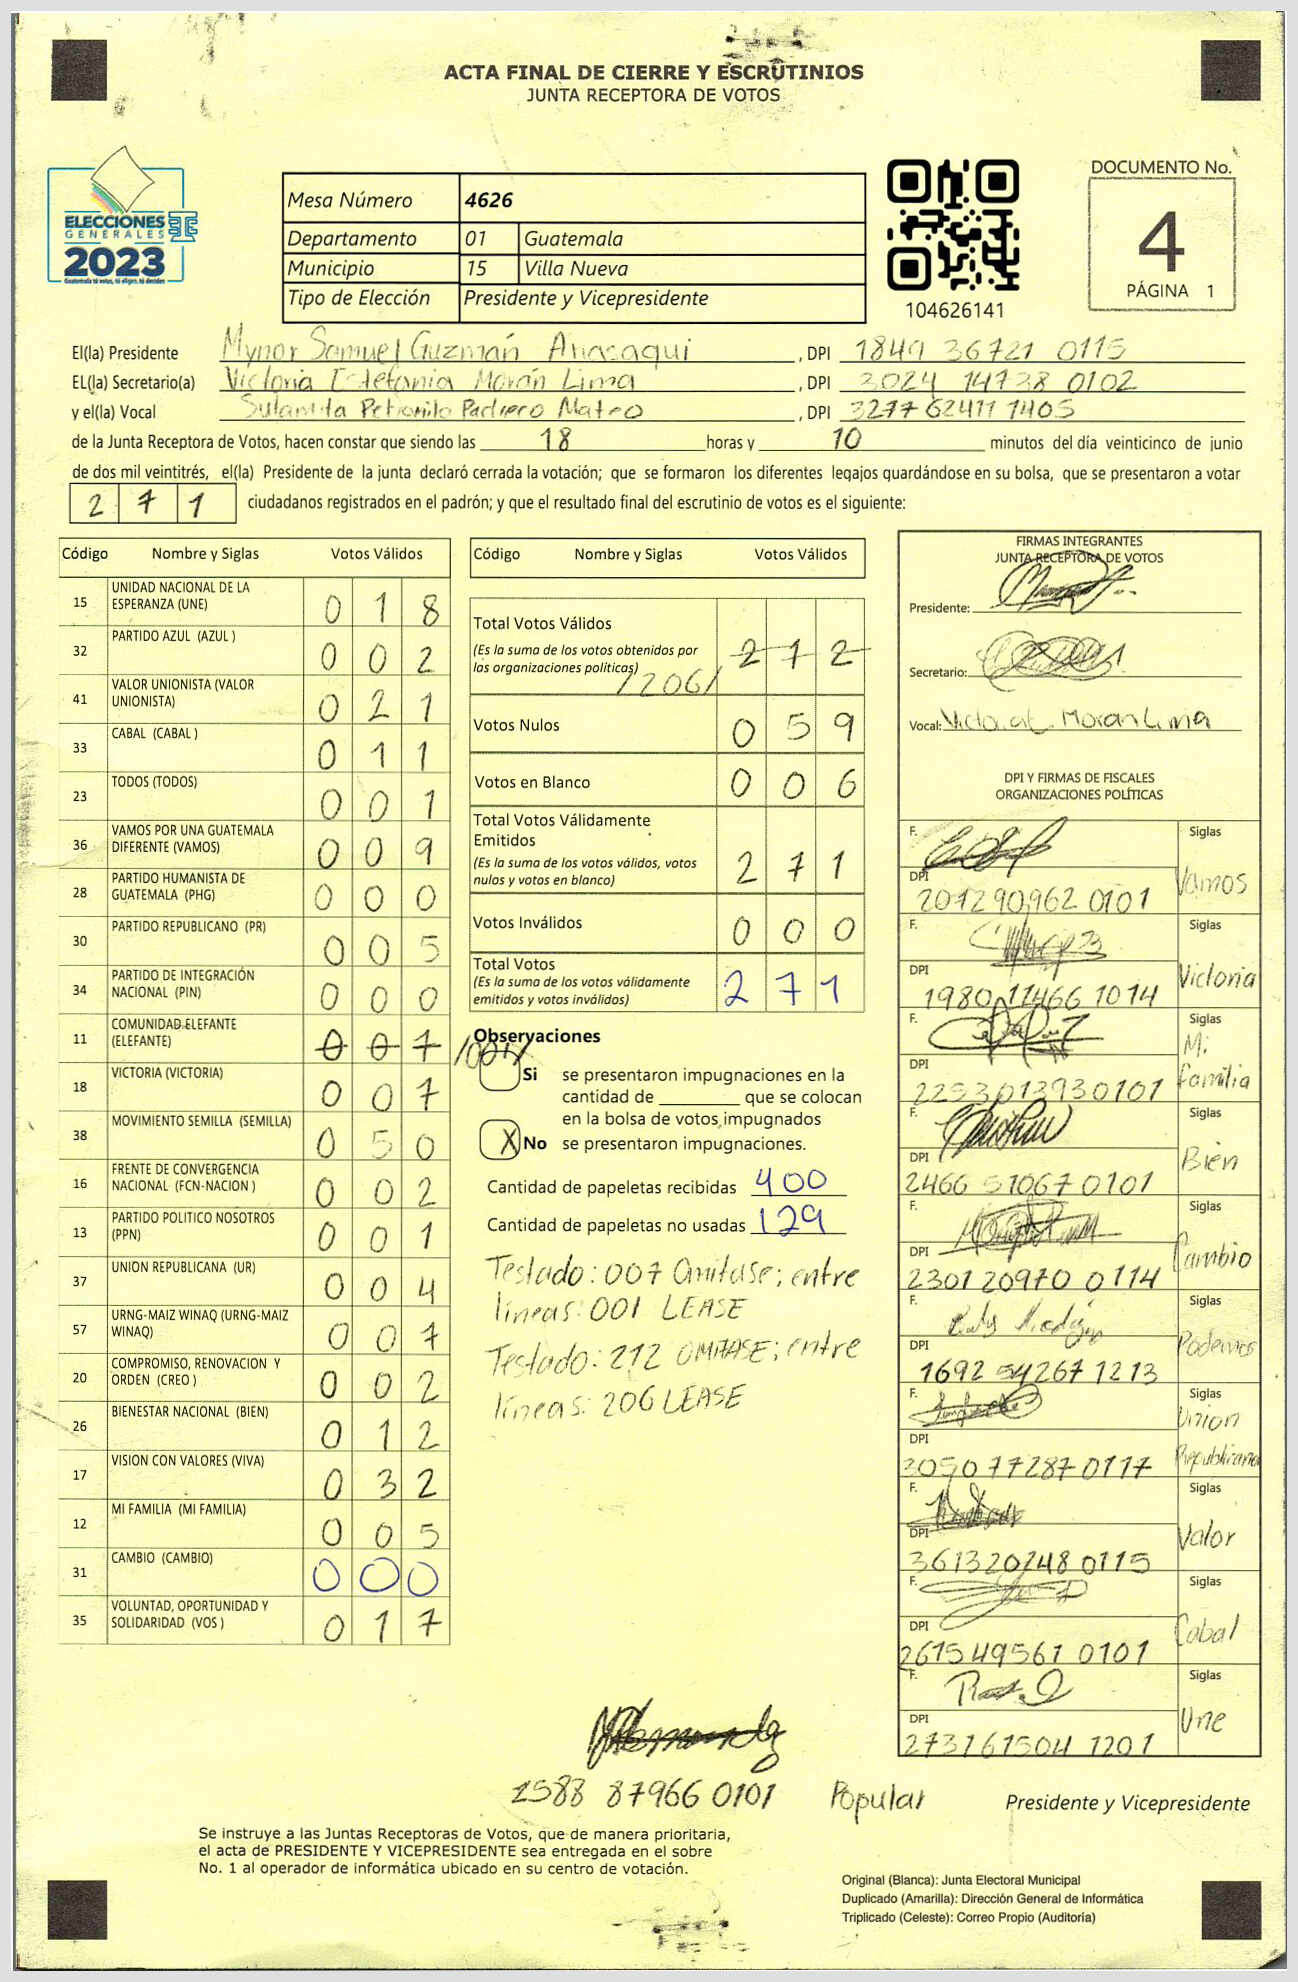 ACTA FINAL DE CIERRE Y ESCRUTINIOS
JUNTA RECEPTORA DE VOTOS
ELECCIONES
GENERALES
2023
Guatemala tú votas, tú eliges, tú decides
Mesa Número 4626
Departamento 01 Guatemala
Municipio 15 Villa Nueva
Tipo de Elección Presidente y Vicepresidente
104626141
DOCUMENTO No.
4
PÁGINA 1
El(la) Presidente Mynor Samuel Guzmán , DPI 1849 36721 0115
EL(la) Secretario(a) Victoria Estefania Morán Lima , DPI 3024 14738 0102
y el(la) Vocal Sulamita Mateo , DPI 3277 62411 1405
de la Junta Receptora de Votos, hacen constar que siendo las 18 horas y 10 minutos del día veinticinco de junio
de dos mil veintitrés, el(la) Presidente de la junta declaró cerrada la votación; que se formaron los diferentes legajos guardándose en su bolsa, que se presentaron a votar
271 ciudadanos registrados en el padrón; y que el resultado final del escrutinio de votos es el siguiente:
Código Nombre y Siglas Votos Válidos
15 UNIDAD NACIONAL DE LA ESPERANZA (UNE) 018
32 PARTIDO AZUL (AZUL ) 002
41 VALOR UNIONISTA (VALOR UNIONISTA) 021
33 CABAL (CABAL ) 011
23 TODOS (TODOS) 001
36 VAMOS POR UNA GUATEMALA DIFERENTE (VAMOS) 009
28 PARTIDO HUMANISTA DE GUATEMALA (PHG) 000
30 PARTIDO REPUBLICANO (PR) 005
34 PARTIDO DE INTEGRACIÓN NACIONAL (PIN) 000
11 COMUNIDAD ELEFANTE (ELEFANTE) 007 /001/
18 VICTORIA (VICTORIA) 007
38 MOVIMIENTO SEMILLA (SEMILLA) 050
16 FRENTE DE CONVERGENCIA NACIONAL (FCN-NACION ) 002
13 PARTIDO POLITICO NOSOTROS (PPN) 001
37 UNION REPUBLICANA (UR) 004
57 URNG-MAIZ WINAQ (URNG-MAIZ WINAQ) 007
20 COMPROMISO, RENOVACION Y ORDEN (CREO ) 002
26 BIENESTAR NACIONAL (BIEN) 012
17 VISION CON VALORES (VIVA) 032
12 MI FAMILIA (MI FAMILIA) 005
31 CAMBIO (CAMBIO) 000
35 VOLUNTAD, OPORTUNIDAD Y SOLIDARIDAD (VOS ) 017
Código Nombre y Siglas Votos Válidos
Total Votos Válidos
(Es la suma de los votos obtenidos por
las organizaciones políticas) 212
/206/
Votos Nulos 059
Votos en Blanco 006
Total Votos Válidamente
Emitidos
(Es la suma de los votos válidos, votos
nulos y votos en blanco) 271
Votos Inválidos 000
Total Votos
(Es la suma de los votos válidamente
emitidos y votos inválidos) 271
Observaciones
Si se presentaron impugnaciones en la
cantidad de ________ que se colocan
en la bolsa de votos impugnados
X No se presentaron impugnaciones.
Cantidad de papeletas recibidas 400
Cantidad de papeletas no usadas 129
Testado: 007 Omitase; entre
líneas: 001 LEASE
Testado: 212 OMITASE; entre
líneas: 206 LEASE
FIRMAS INTEGRANTES
JUNTA RECEPTORA DE VOTOS
Presidente:
Secretario:
Vocal: Moran Lima
DPI Y FIRMAS DE FISCALES
ORGANIZACIONES POLÍTICAS
F. Siglas
DPI Vamos
201290962 0101
F. Siglas
DPI Victoria
1980 11466 1014
F. Siglas
DPI Mi familia
2253013930101
F. Siglas
DPI Bien
2466 51067 0101
F. Siglas
DPI Cambio
2301 20970 0114
F. Siglas
DPI Podemos
1692 54267 1213
F. Siglas
DPI Union Republicana
3050 77287 0117
F. Siglas
DPI Valor
361320248 0115
F. Siglas
DPI Cabal
261549561 0101
F. Siglas
DPI Une
273161504 1201
1588 87966 0101 Popular
Presidente y Vicepresidente
Se instruye a las Juntas Receptoras de Votos, que de manera prioritaria,
el acta de PRESIDENTE Y VICEPRESIDENTE sea entregada en el sobre
No. 1 al operador de informática ubicado en su centro de votación.
Original (Blanca): Junta Electoral Municipal
Duplicado (Amarilla): Dirección General de Informática
Triplicado (Celeste): Correo Propio (Auditoría)